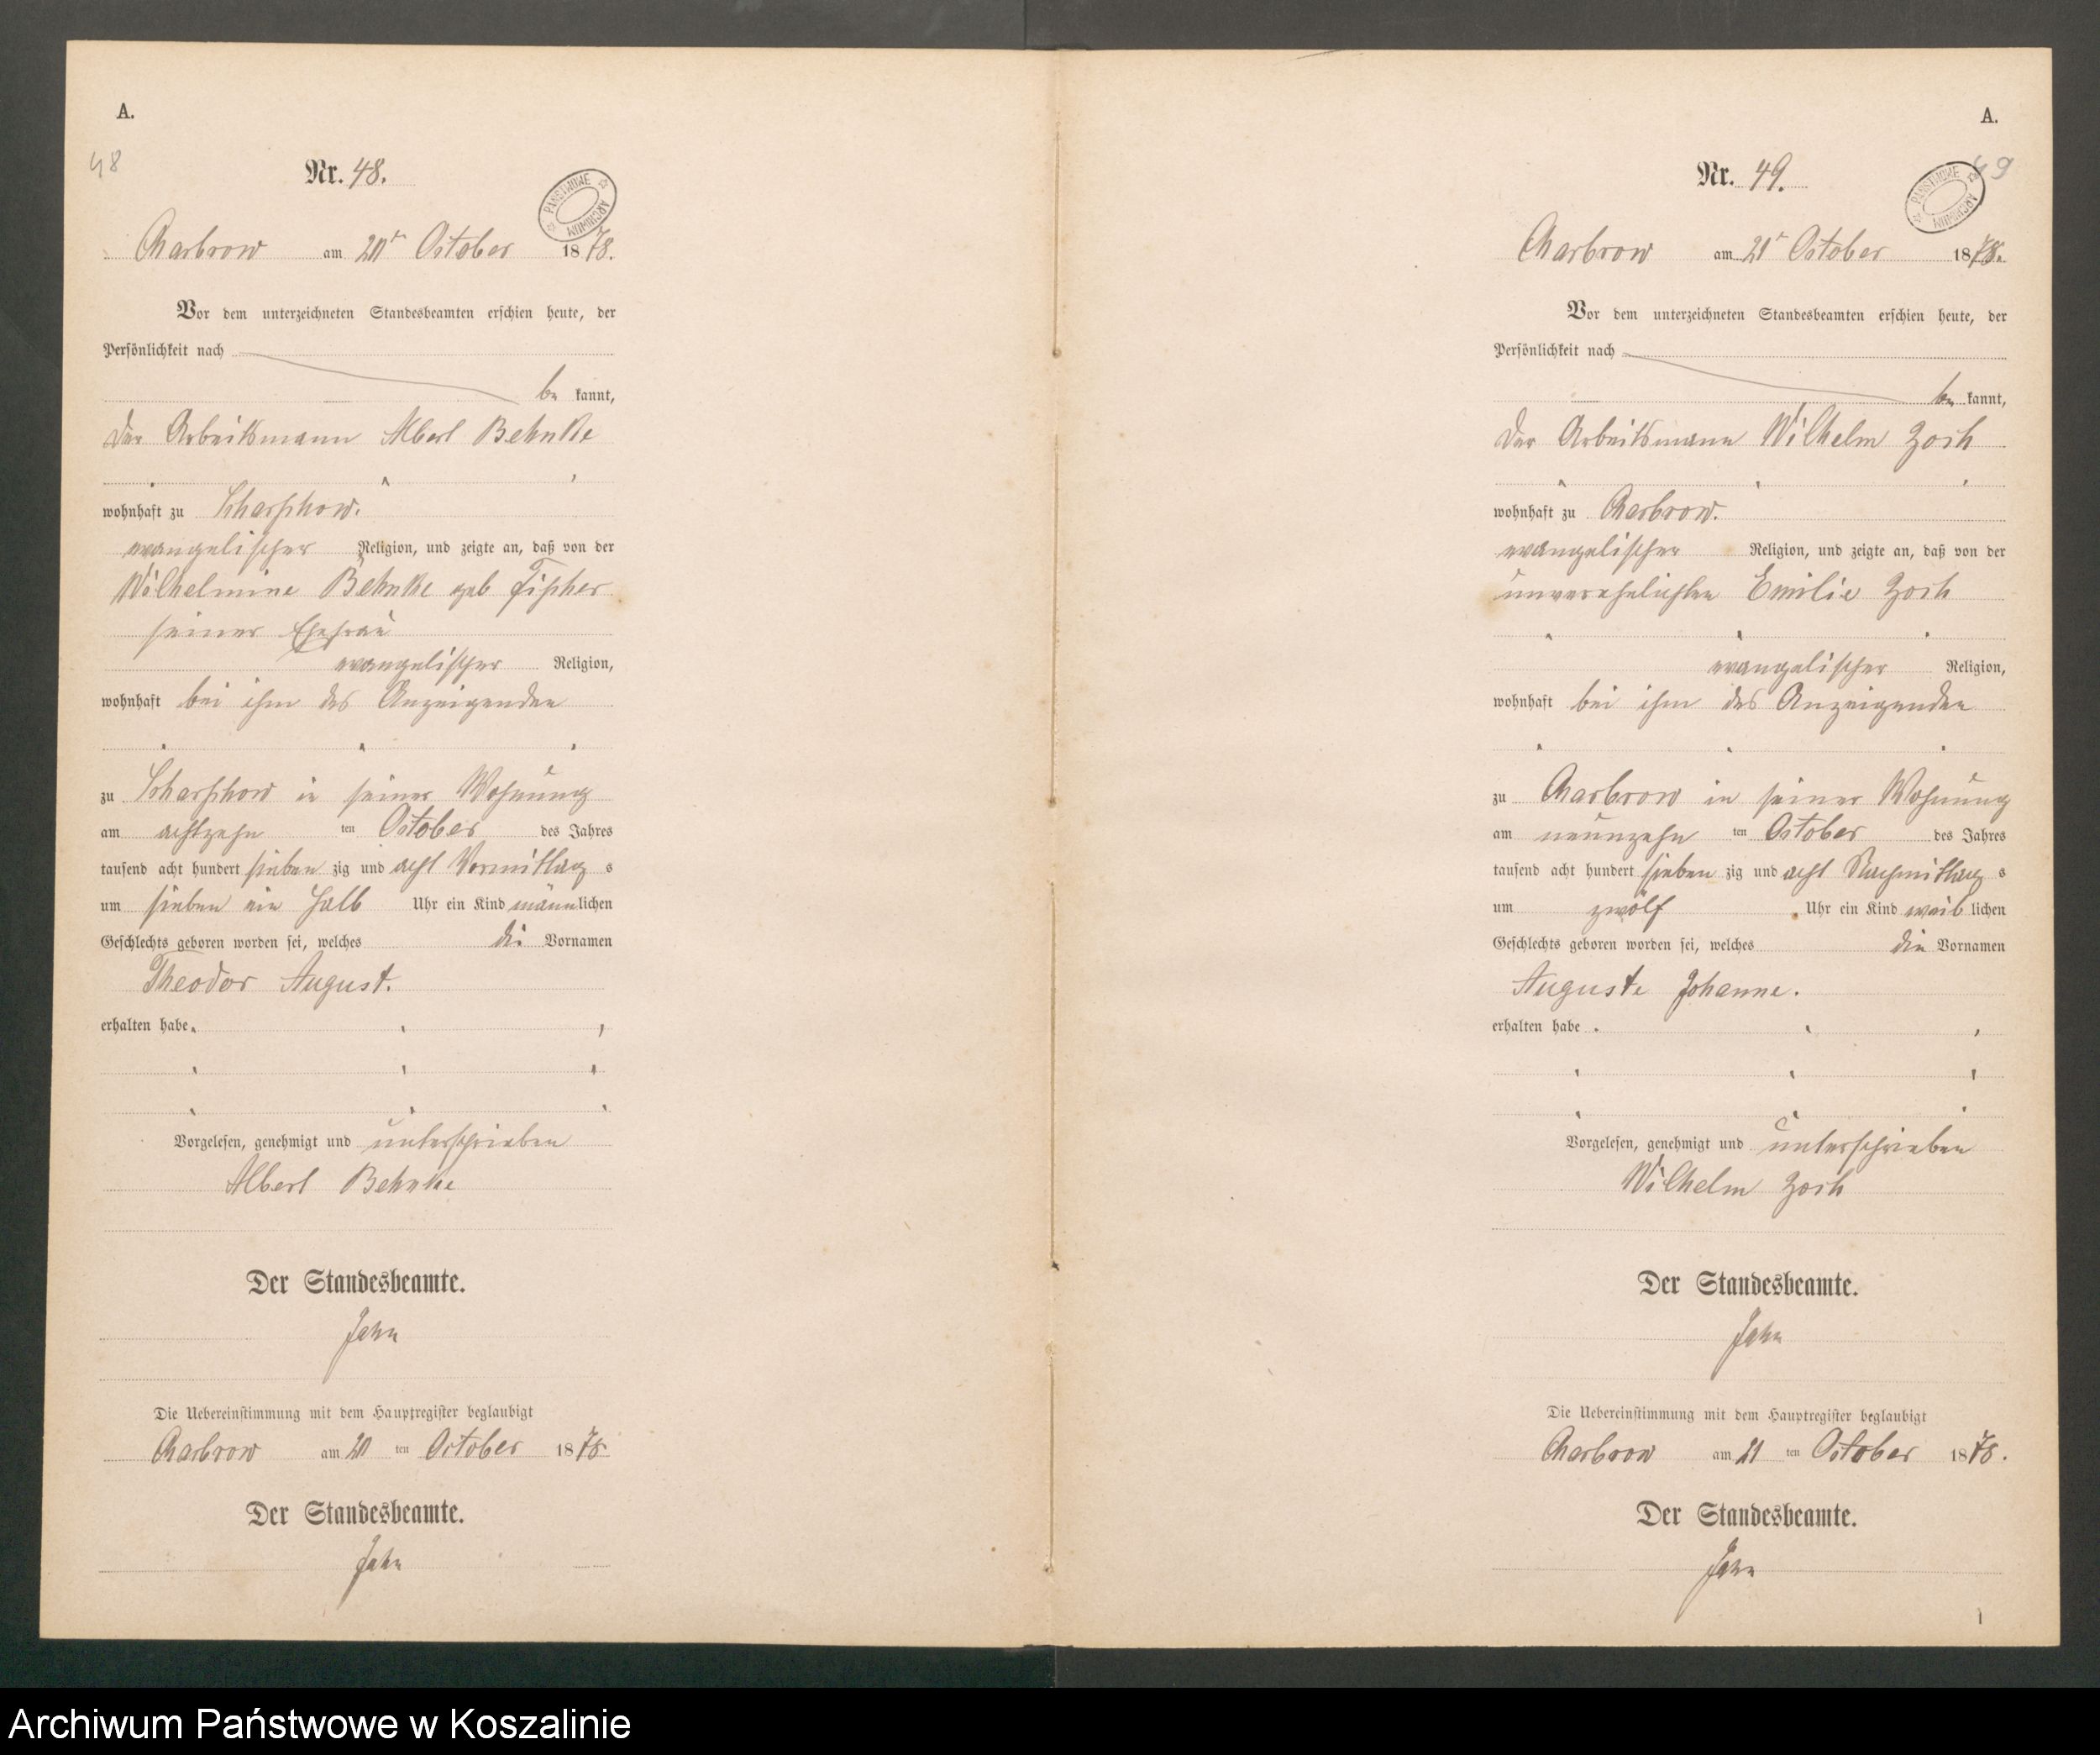 A.
48
Nr. 48.
PAŃSTWOWE ARCHIWUM
Charbrow am 20t October 1878.
Vor dem unterzeichneten Standesbeamten erschien heute, der
Persönlichkeit nach
be kannt,
der Arbeitsmann Albert Behnke
wohnhaft zu Scharschow.
evangelischer Religion, und zeigte an, daß von der
Wilhelmine Behnke geb Fischer
seiner Ehefrau
evangelischer Religion,
wohnhaft bei ihm des Anzeigenden
zu Scharschow in seiner Wohnung
am achtzehn ten October des Jahres
tausend acht hundert sieben zig und acht Vormittag s
um sieben ein halb Uhr ein Kind männlichen
Geschlechts geboren worden sei, welches die Vornamen
Theodor August.
erhalten habe
Vorgelesen, genehmigt und unterschrieben
Albert Behnke
Der Standesbeamte.
Jahn
Die Uebereinstimmung mit dem Hauptregister beglaubigt
Charbrow am 20 ten October 1878
Der Standesbeamte.
Jahn
A.
49
Nr. 49.
PAŃSTWOWE ARCHIWUM
Charbrow am 21t October 1878.
Vor dem unterzeichneten Standesbeamten erschien heute, der
Persönlichkeit nach
be kannt,
der Arbeitsmann Wilhelm Zoch
wohnhaft zu Charbrow.
evangelischer Religion, und zeigte an, daß von der
unverehelichten Emilie Zoch
evangelischer Religion,
wohnhaft bei ihm des Anzeigenden
zu Charbrow in seiner Wohnung
am neunzehn ten October des Jahres
tausend acht hundert sieben zig und acht Nachmittag s
um zwölf Uhr ein Kind weib lichen
Geschlechts geboren worden sei, welches die Vornamen
Auguste Johanne.
erhalten habe
Vorgelesen, genehmigt und unterschrieben
Wilhelm Zoch
Der Standesbeamte.
Jahn
Die Uebereinstimmung mit dem Hauptregister beglaubigt
Charbrow am 21 ten October 1878.
Der Standesbeamte.
Jahn
Archiwum Państwowe w Koszalinie